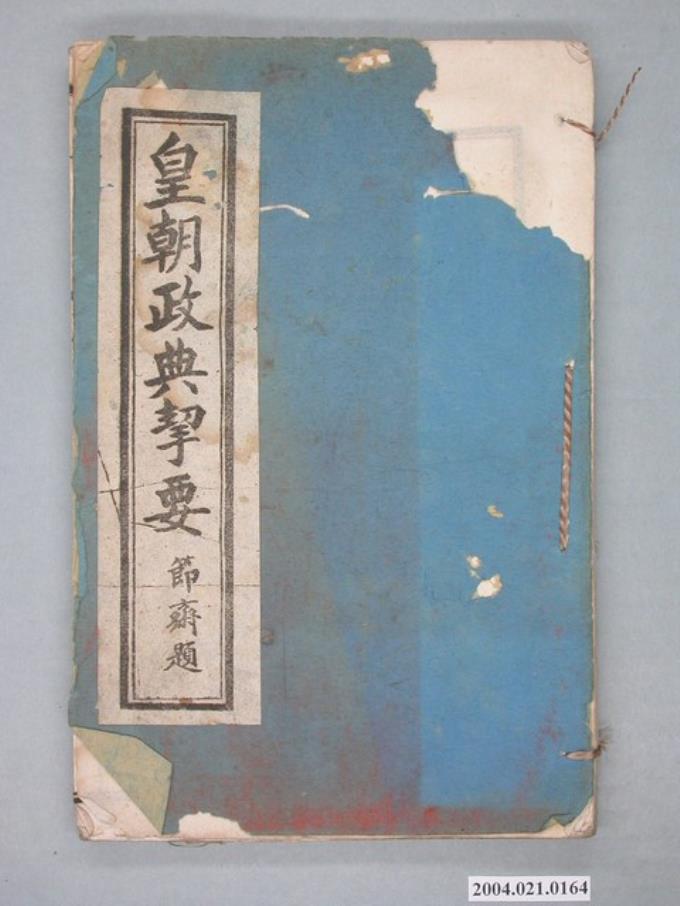 皇朝政典挈要
節齋題
2004.021.0164